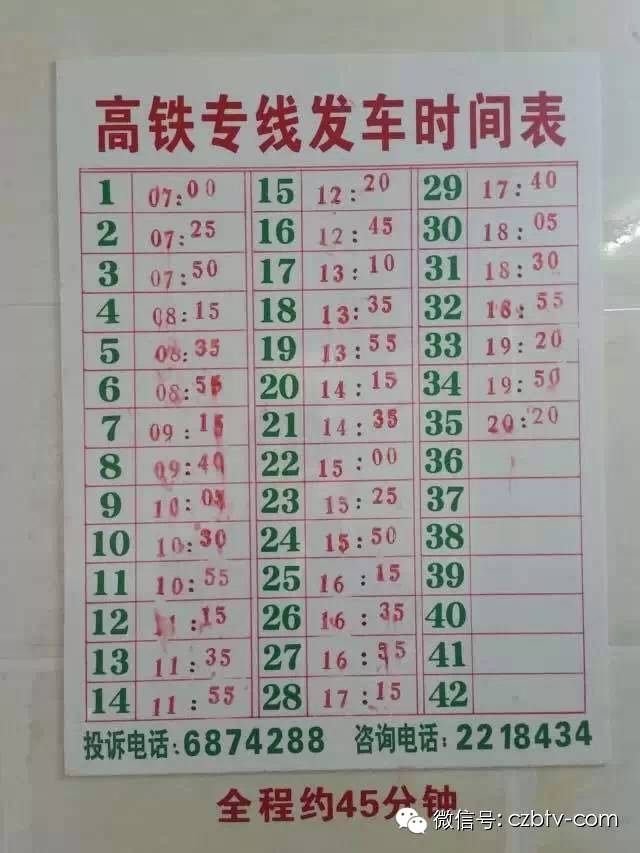 高铁专线发车时间表
1 07:00 15 12:20 29 17:40
2 07:25 16 12:45 30 18:05
3 07:50 17 13:10 31 18:30
4 08:15 18 13:35 32 18:55
5 08:35 19 13:55 33 19:20
6 08:55 20 14:15 34 19:50
7 09:15 21 14:35 35 20:20
8 09:40 22 15:00 36
9 10:05 23 15:25 37
10 10:30 24 15:50 38
11 10:55 25 16:15 39
12 11:15 26 16:35 40
13 11:35 27 16:55 41
14 11:55 28 17:15 42
投诉电话:6874288 咨询电话:2218434
全程约45分钟
微信号: czbtv-com